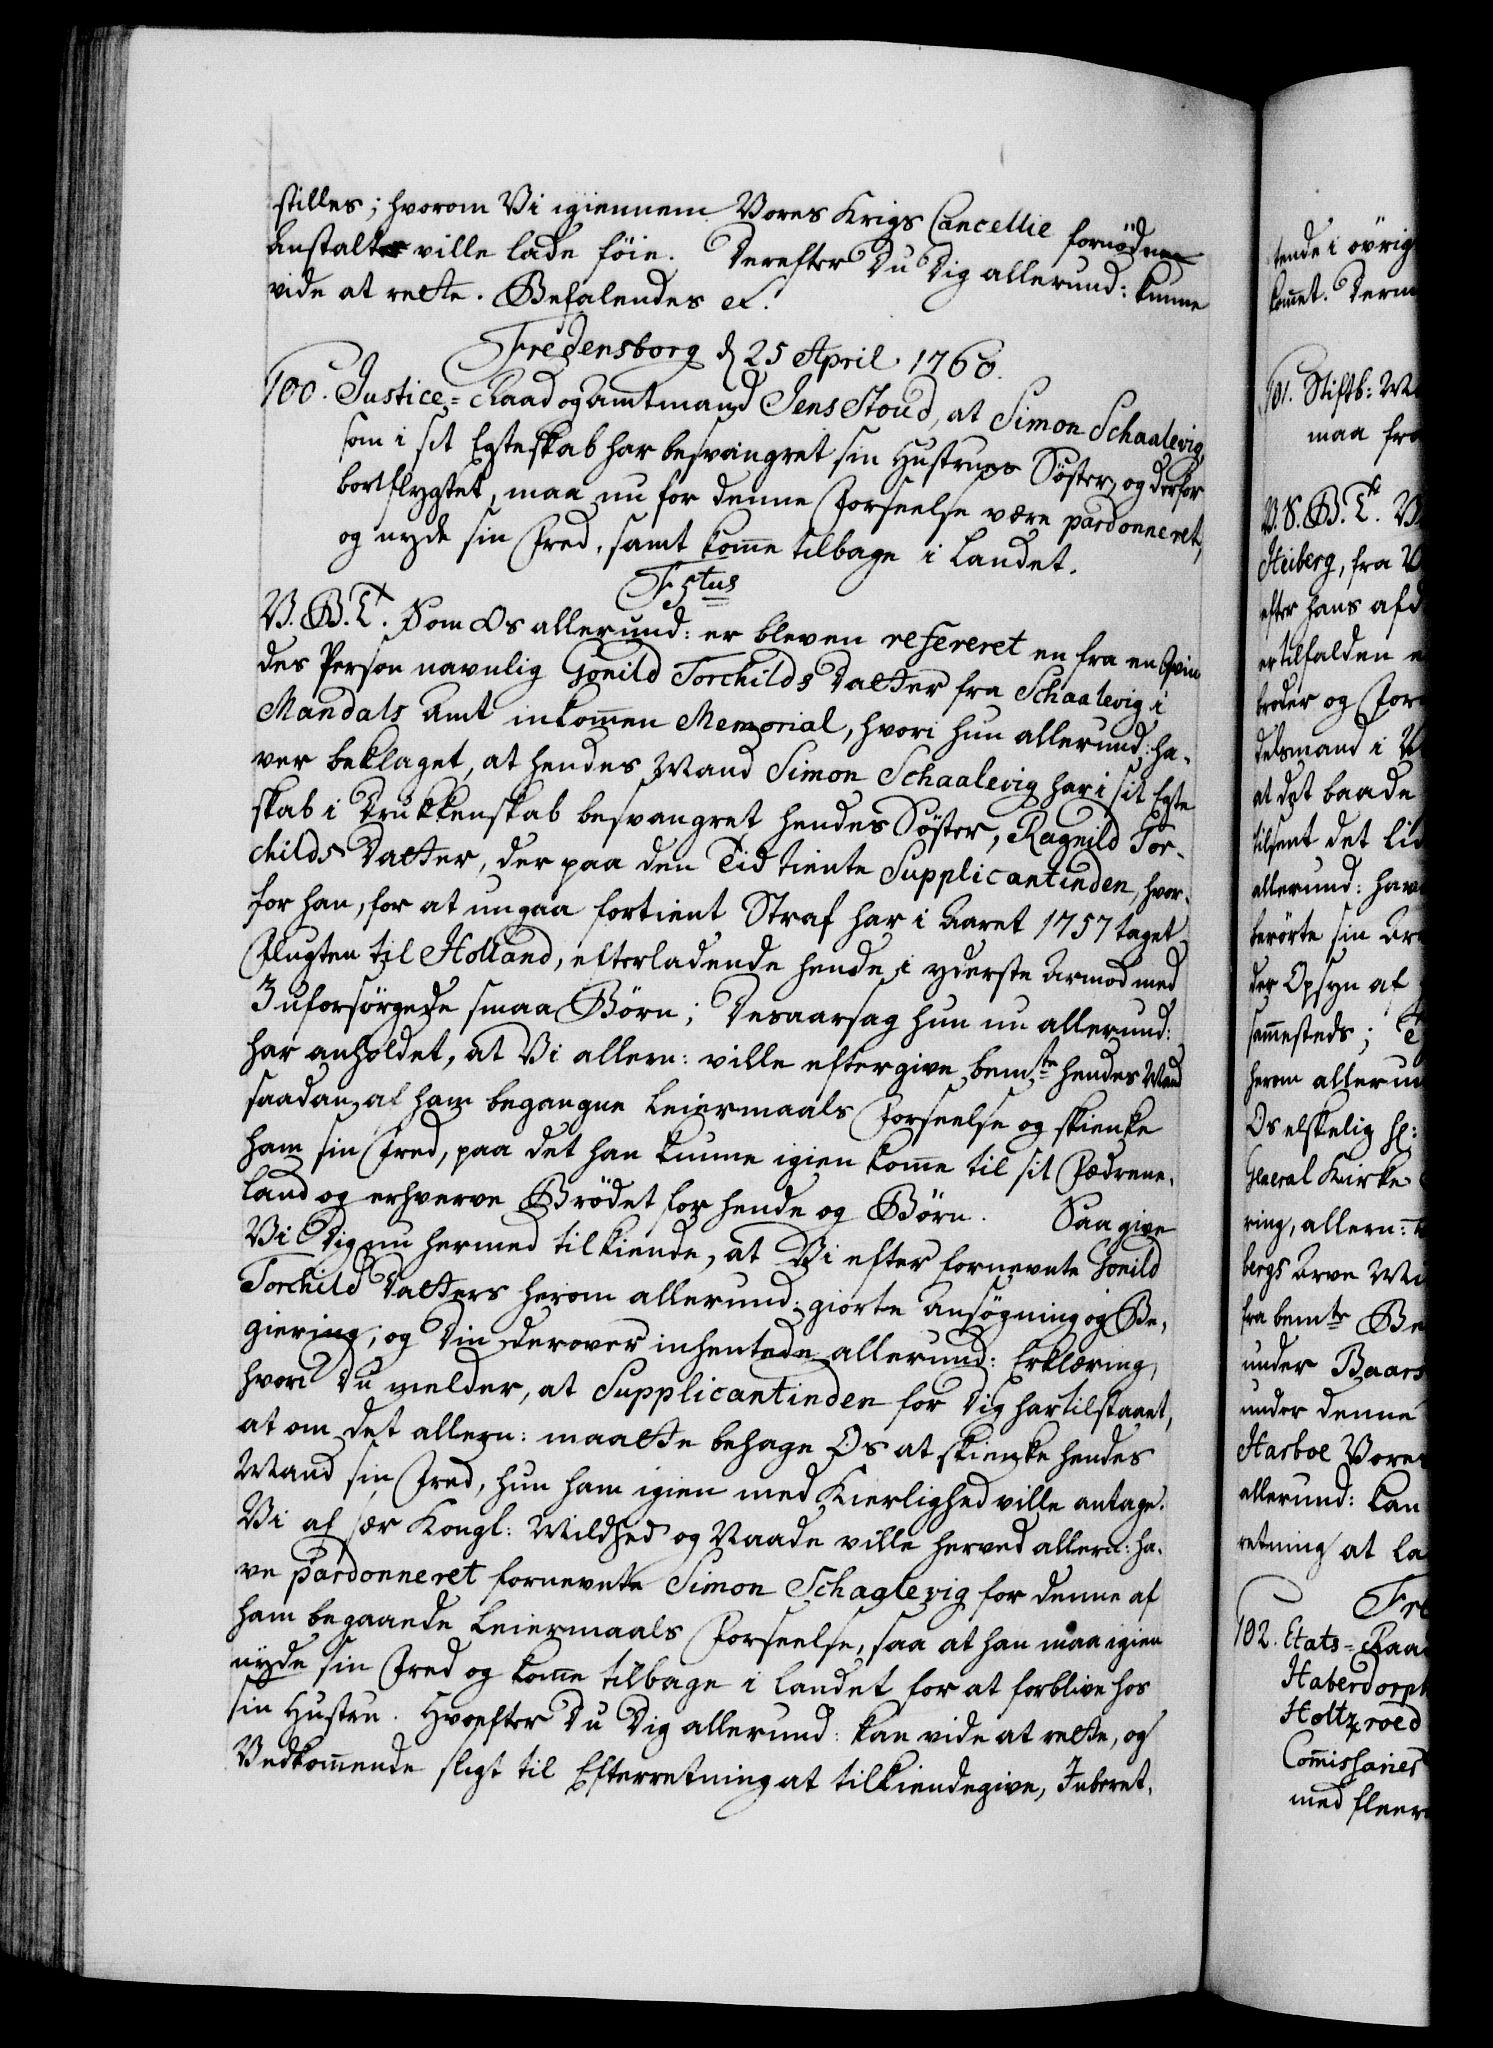 stilles; hvorom Vi igiennem Vores Krigs Cancellie fornödne
Anstalter ville lade föie. Derefter Du Dig allerund: kunne
vide at rette. Befalendes et.
Fredensborg d 25 April 1760.
100. Justice-Raad og Amtmand Jens Stoud, at Simon Schaalevig,
som i sit Egteskab har besvangret sin Hustrues Söster, og derfor
bortflygtet, maa nu for denne Forseelse være pardonneret,
og nyde sin Fred, samt kom̄e tilbage i Landet.
F 5tus
V. G. T. Som Os allerund: er bleven refereret en fra en Qvin
des Person navnlig Gonild Torchilds Datter fra Schaalevig i
Mandals Amt inkom̄en Memorial, hvori hun allerund: ha-
ver beklaget, at hendes Mand Simon Schaalevig har i sit Egte
skab i Drukkenskab besvangret hendes Söster, Ragnild Tor-
childs Datter, der paa den Tid tiente Supplicantinden, hvor-
for han, for at undgaa fortient Straf har i Aaret 1757 taget
Flugten til Holland, efterladende hende i yderste Armod med
3 uforsörgede smaa Börn; Desaarsag hun nu allerund:
har anholdet, at Vi allern: ville eftergive bemte hendes Mand
saadan af ham begangne Leiermaals Forseelse og skienke
ham sin Fred, paa det han kunne igien kom̄e til sit Fædrene-
land og erhverve Brödet for hende og Börn. Saa give
Vi Dig nu hermed tilkiende, at Vi efter fornevnte Gonild
Torchild Datters herom allerund: giorte Ansögning og Be-
giering; og Din derover inhentede allerund: Erklæring,
hvori Du melder, at Supplicantinden for Dig har tilstaaet,
at om det allern: maatte behage Os at skienke hendes
Mand sin Fred, hun ham igien med Kierlighed ville antage.
Vi af sær Kongl: Mildhed og Naade ville herved allern: ha-
ve pardonneret fornevnte Simon Schaalevig for denne af
ham begaaende Leiermaals Forseelse, saa at han maa igien
nyde sin Fred og kom̄e tilbage i Landet for at forblive hos
sin Hustru. Hvorefter Du Dig allerund: kan vide at rette, og
Vedkom̄ende sligt til Efterretning at tilkiendegive, Inberet-
tende i övrig
kom̄et. Derm
101. Stiftb: 
maa fra
V. S. G. T.
Heiberg, fra
efter hans afd
er tilfalden
broder og For
delsmand i
at det baade
tilsent det
allerund: hav
berörte sin Ar
der Opsyn af
sam̄esteds;
herom allerun
Os elskelig
General Kirke
ring, allern:
bergs Arve
fra bemte Be
under Baars
under denne
Harboe Vores
allerund: kan
retning at la
Fre
102. Etats-Raad
Haberdorph
Holtzroed
Com̄issaries
med fleere